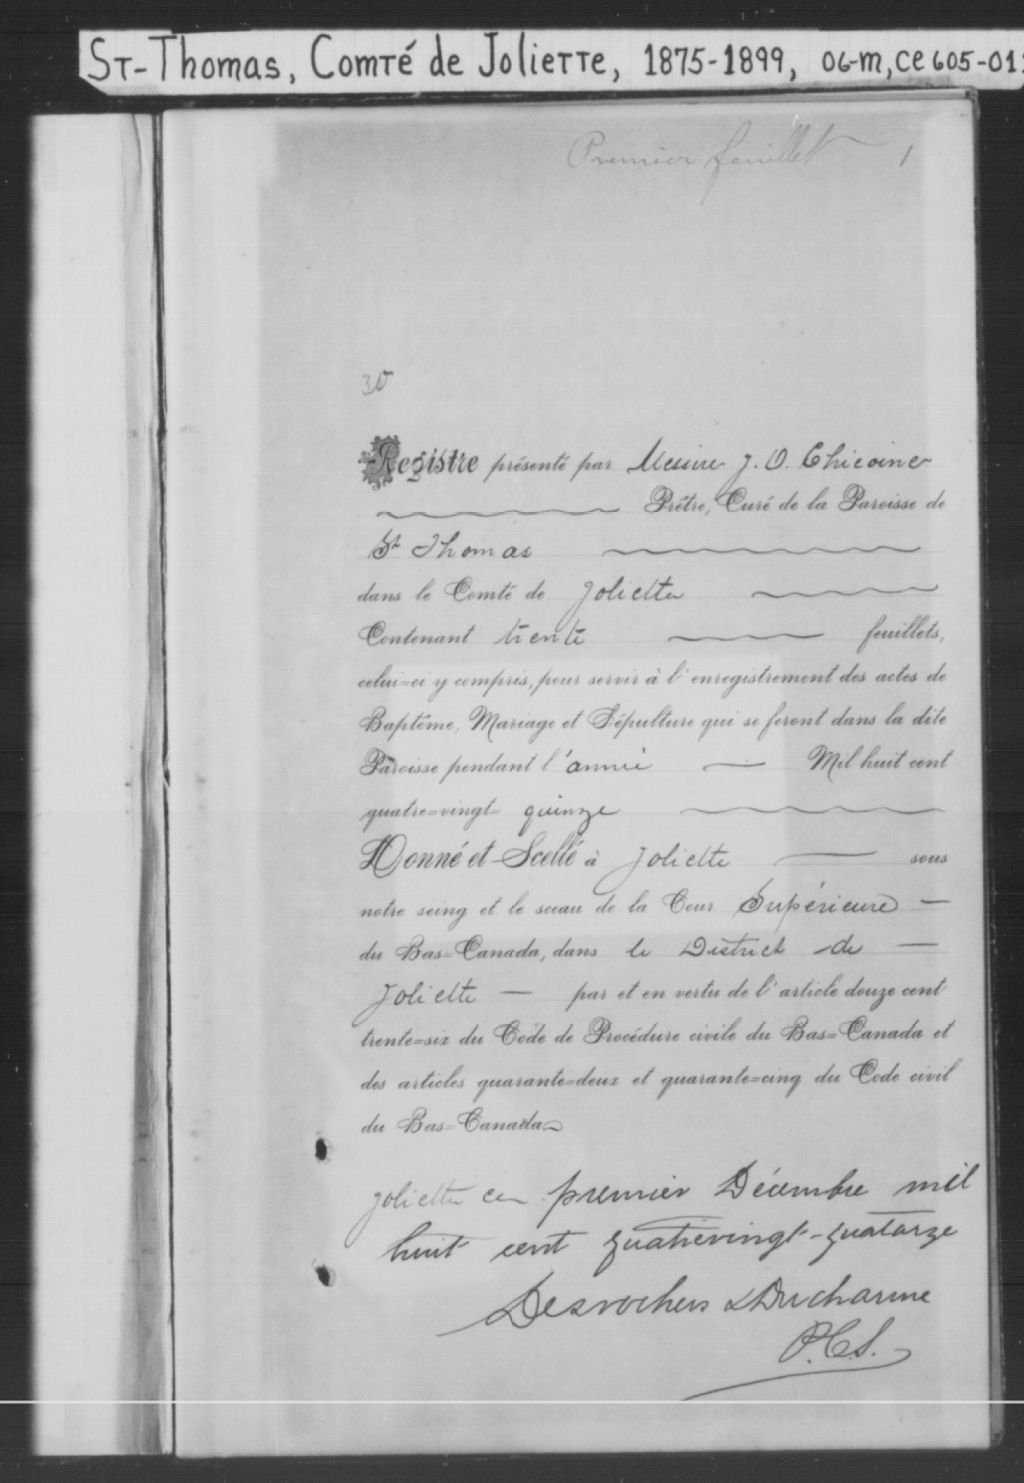 ST-Thomas, Comté de Joliette, 1875-1899, 06-M, CE605-01
Premier feuillet 1
30
Registre présenté par Messire J. O. Chicoine
Prêtre, Curé de la Paroisse de
St Thomas
dans le Comté de Joliette
Contenant trente feuillets,
celui-ci y compris, pour servir à l'enregistrement des actes de
Baptême, Mariage et Sépulture qui se feront dans la dite
Paroisse pendant l'année Mil huit cent
quatre=vingt= quinze
Donné et Scellé à Joliette sous
notre seing et le sceau de la Cour Supérieure
du Bas=Canada, dans le District de
Joliette par et en vertu de l'article douze cent
trente=six du Code de Procédure civile du Bas=Canada et
des articles quarante=deux et quarante=cinq du Code civil
du Bas=Canada
Joliette ce premier Décembre mil
huit cent quatrevingt-quatorze
Desrochers & Ducharme
P.C.S.